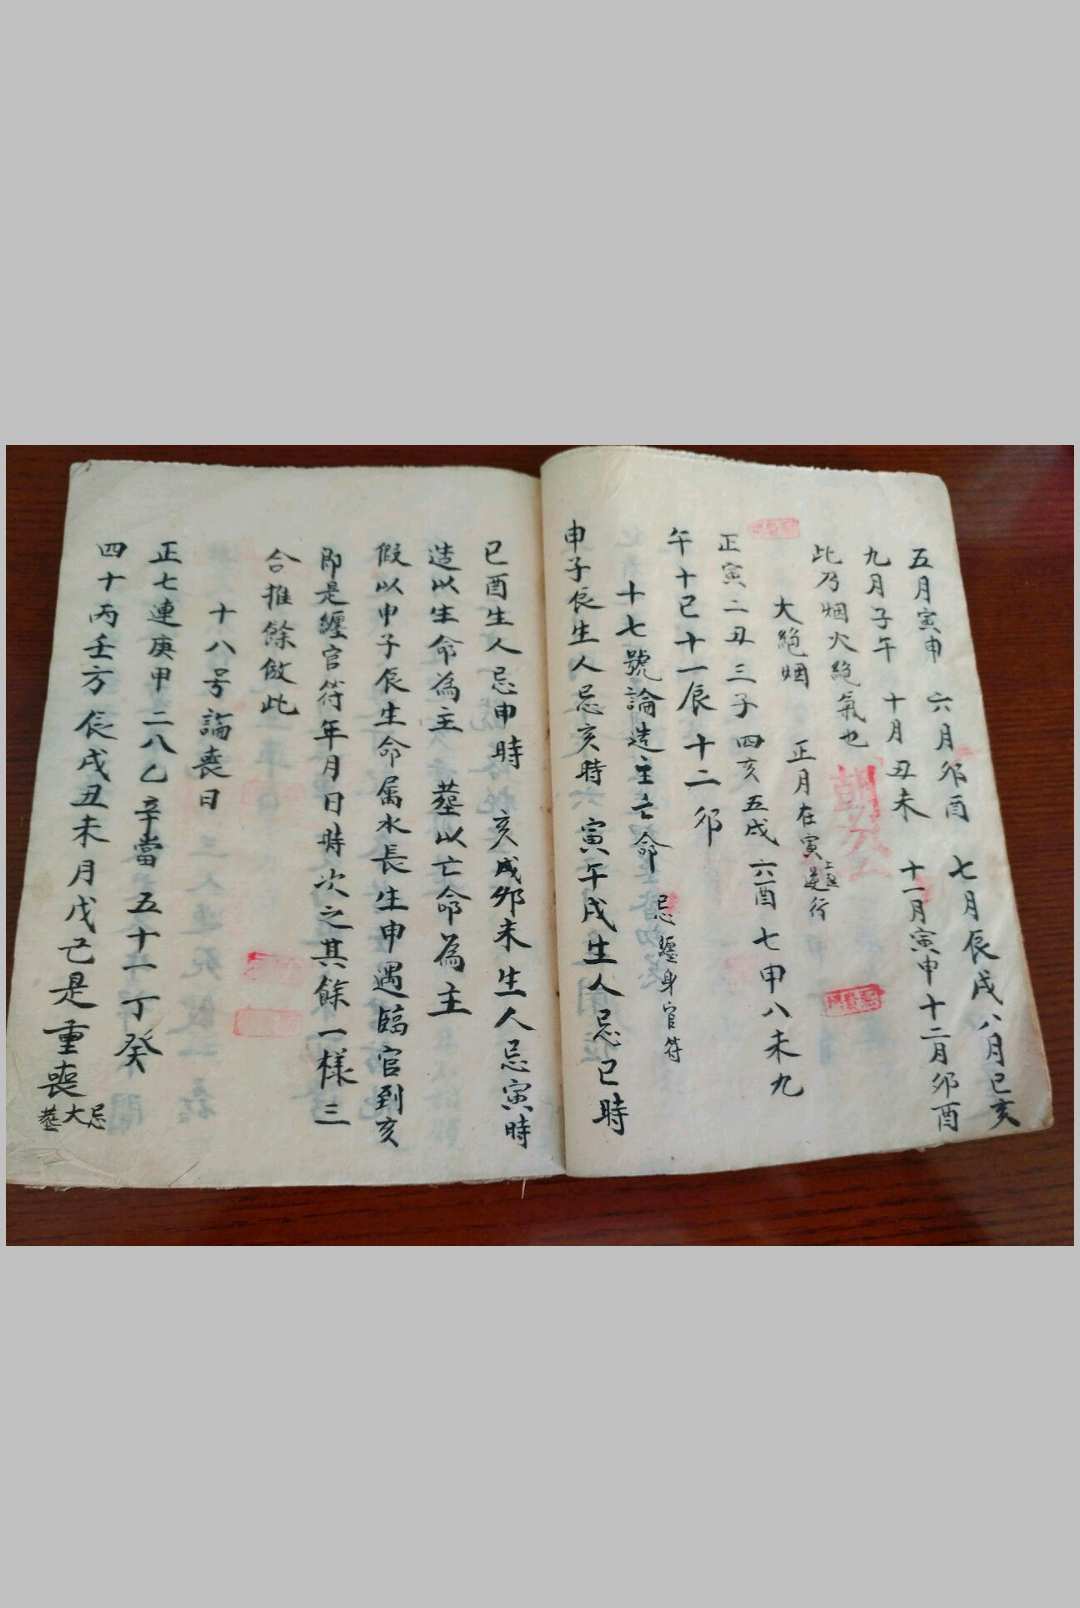 五月寅申 六月卯酉 七月辰戌 八月巳亥
九月子午 十月丑未 十一月寅申 十二月卯酉
此乃烟火絕氣也
大絕烟 正月在寅上逆行
正寅二丑三子四亥五戌六酉七申八未九
午十巳十一辰十二卯
十七號論造主亡命 忌纏身官符
申子辰生人忌亥時 寅午戌生人忌巳時
巳酉生人忌申時 亥戌卯未生人忌寅時
造以生命為主 塟以亡命為主
假以申子辰生命属水長生申遇臨官到亥
即是纏官符年月日時次之其餘一樣三
合推餘倣此
十八号論喪日
正七連庚甲二八乙辛當五十一丁癸
四十丙壬方辰戌丑未月戊己是重喪
忌大塟